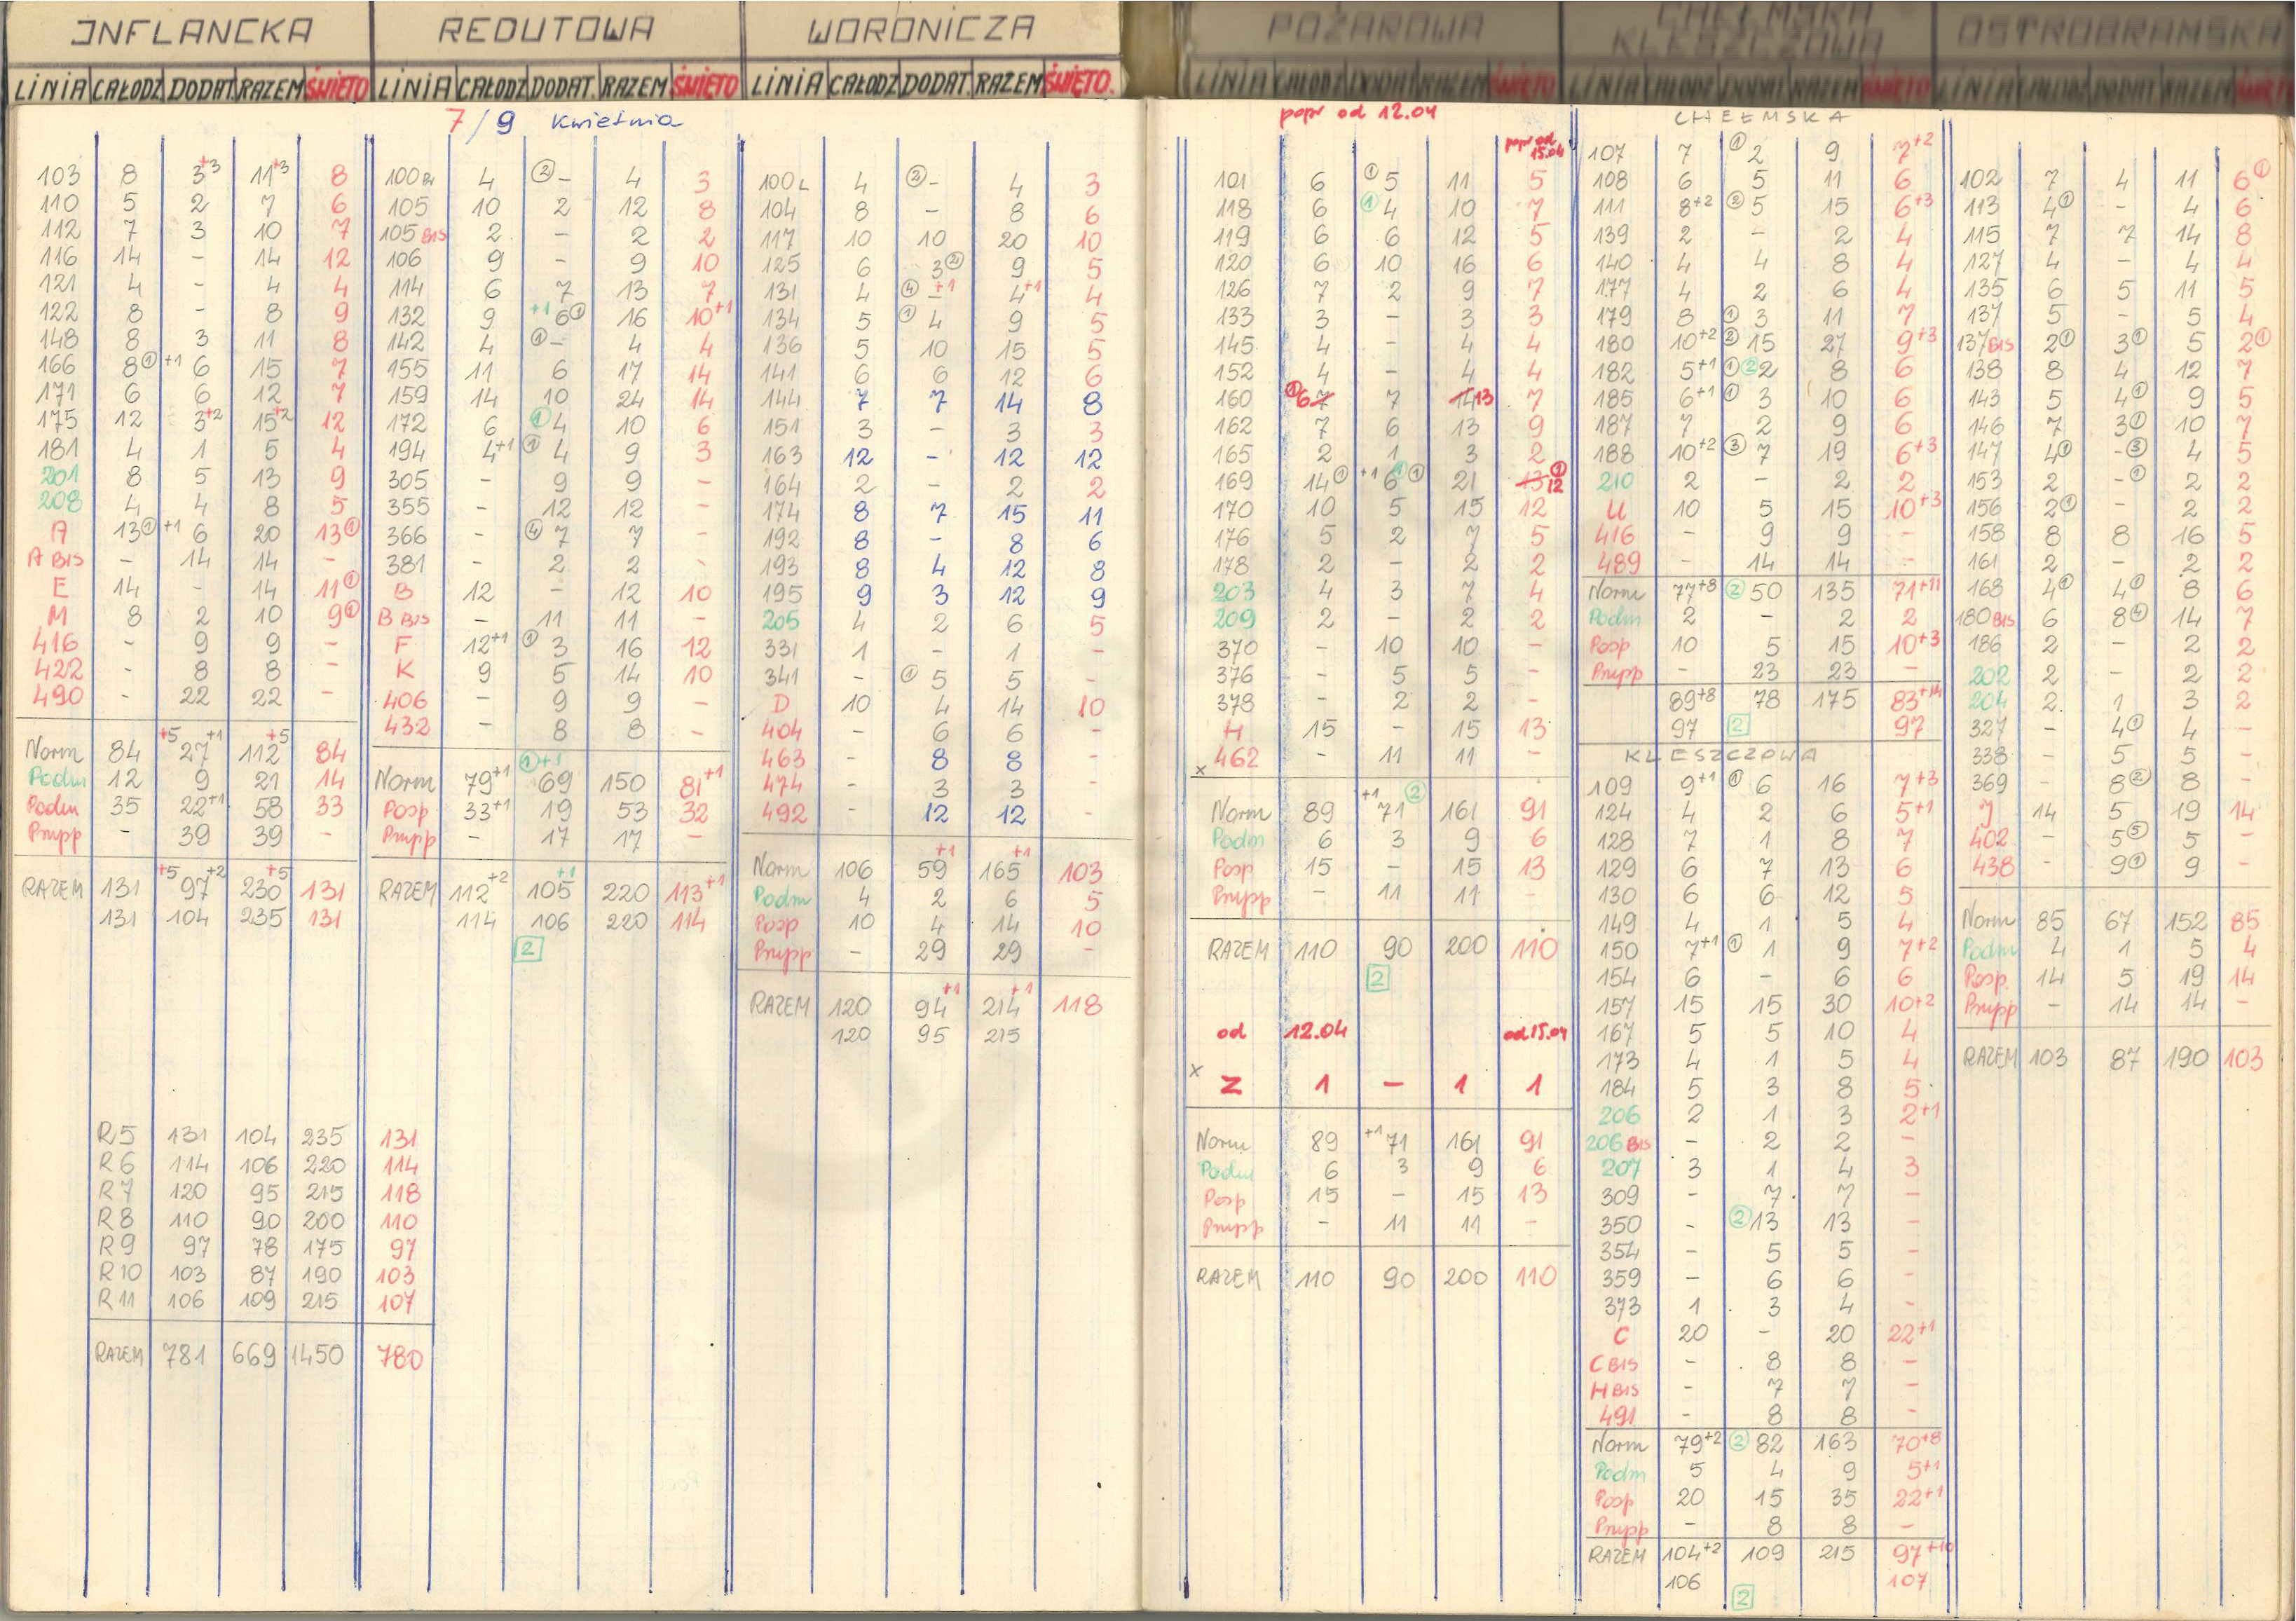 INFLANCKA
LINIA CAŁODZ DODAT RAZEM ŚWIĘTO
103 8 3+3 11+3 8
110 5 2 7 6
112 7 3 10 7
116 14 - 14 12
121 4 - 4 4
122 8 - 8 9
148 8 3 11 8
166 8① +1 6 15 7
171 6 6 12 7
175 12 3+2 15+2 12
181 4 1 5 4
201 8 5 13 9
208 4 4 8 5
A 13① +1 6 20 13①
A BIS - 14 14 -
E 14 - 14 11①
M 8 2 10 9①
416 - 9 9 -
422 - 8 8 -
490 - 22 22 -
Norm 84 +5 27+1 112+5 84
Podm 12 9 21 14
Podm 35 22+1 58 33
Prupp - 39 39 -
RAZEM 131 +5 97+2 230+5 131
131 104 235 131
R5 131 104 235 131
R6 114 106 220 114
R7 120 95 215 118
R8 110 90 200 110
R9 97 78 175 97
R10 103 87 190 103
R11 106 109 215 107
RAZEM 781 669 1450 780
REDUTOWA
LINIA CAŁODZ DODAT. RAZEM ŚWIĘTO
7/9 kwietnia
100 4 ②- 4 3
105 10 2 12 8
105 BIS 2 - 2 2
106 9 - 9 10
114 6 7 13 7
132 9 +1 6① 16 10+1
142 4 ①- 4 4
155 11 6 17 14
159 14 10 24 14
172 6 ①4 10 6
194 4+1 ①4 9 3
305 - 9 9 -
355 - 12 12 -
366 - ④7 7 -
381 - 2 2 -
B 12 - 12 10
B BIS - 11 11 -
F 12+1 ①3 16 12
K 9 5 14 10
406 - 9 9 -
432 - 8 8 -
Norm 79+1 ①+1 69 150 81+1
Posp 33+1 19 53 32
Prupp - 17 17 -
RAZEM 112+2 105+1 220 113+1
114 106 220 114
2
WORONICZA
LINIA CAŁODZ DODAT. RAZEM ŚWIĘTO.
100L 4 ②- 4 3
104 8 - 8 6
117 10 10 20 10
125 6 3② 9 5
131 4 ④-+1 4+1 4
134 5 ①4 9 5
136 5 10 15 5
141 6 6 12 6
144 7 7 14 8
151 3 - 3 3
163 12 - 12 12
164 2 - 2 2
174 8 7 15 11
192 8 - 8 6
193 8 4 12 8
195 9 3 12 9
205 4 2 6 5
331 1 - 1 -
341 - ①5 5 -
D 10 4 14 10
404 - 6 6 -
463 - 8 8 -
474 - 3 3 -
492 - 12 12 -
Norm 106 59+1 165+1 103
Podm 4 2 6 5
Posp 10 4 14 10
Prupp - 29 29 -
RAZEM 120 94+1 214+1 118
120 95 215
POŻAROWA
LINIA CAŁODZ DODAT RAZEM ŚWIĘTO
popr od 12.04
popr od 15.04
101 6 ①5 11 5
118 6 ①4 10 7
119 6 6 12 5
120 6 10 16 6
126 7 2 9 7
133 3 - 3 3
145 4 - 4 4
152 4 - 4 4
160 ①6 7 7 14 13 7
162 7 6 13 9
165 2 1 3 2
169 14① +1 6①① 21 13 ①12
170 10 5 15 12
176 5 2 7 5
178 2 - 2 2
203 4 3 7 4
209 2 - 2 2
370 - 10 10 -
376 - 5 5 -
378 - 2 2 -
H 15 - 15 13
x 462 - 11 11 -
Norm 89 +1 71② 161 91
Podm 6 3 9 6
Posp 15 - 15 13
Prupp - 11 11 -
RAZEM 110 90 200 110
2
od 12.04 od 15.04
x Z 1 - 1 1
Norm 89 +1 71 161 91
Podm 6 3 9 6
Posp 15 - 15 13
Prupp - 11 11 -
RAZEM 110 90 200 110
CHEŁMSKA
KLESZCZOWA
LINIA CAŁODZ DODAT RAZEM ŚWIĘTO
CHEŁMSKA
107 7 ①2 9 7+2
108 6 5 11 6
111 8+2 ②5 15 6+3
139 2 - 2 4
140 4 4 8 4
177 4 2 6 4
179 8 ①3 11 7
180 10+2 ②15 27 9+3
182 5+1 ①②2 8 6
185 6+1 ①3 10 6
187 7 2 9 6
188 10+2 ③7 19 6+3
210 2 - 2 2
U 10 5 15 10+3
416 - 9 9 -
489 - 14 14 -
Norm 77+8 ②50 135 71+11
Podm 2 - 2 2
Posp 10 5 15 10+3
Prupp - 23 23 -
89+8 78 175 83+14
97 2 97
KLESZCZOWA
109 9+1 ①6 16 7+3
124 4 2 6 5+1
128 7 1 8 7
129 6 7 13 6
130 6 6 12 5
149 4 1 5 4
150 7+1 ①1 9 7+2
154 6 - 6 6
157 15 15 30 10+2
167 5 5 10 4
173 4 1 5 4
184 5 3 8 5
206 2 1 3 2+1
206 BIS - 2 2 -
207 3 1 4 3
309 - 7 7 -
350 - ②13 13 -
354 - 5 5 -
359 - 6 6 -
373 1 3 4 -
C 20 - 20 22+1
C BIS - 8 8 -
H BIS - 7 7 -
491 - 8 8 -
Norm 79+2 ②82 163 70+8
Podm 5 4 9 5+1
Posp 20 15 35 22+1
Prupp - 8 8 -
RAZEM 104+2 109 215 97+10
106 2 107
OSTROBRAMSKA
LINIA CAŁODZ DODAT RAZEM
102 7 4 11 6①
113 4① - 4 6
115 7 7 14 8
127 4 - 4 4
135 6 5 11 5
137 5 - 5 4
137 BIS 2① 3① 5 2①
138 8 4 12 7
143 5 4① 9 5
146 7 3① 10 7
147 4① -③ 4 5
153 2 -① 2 2
156 2① - 2 2
158 8 8 16 5
161 2 - 2 2
168 4① 4① 8 6
180 BIS 6 8④ 14 7
186 2 - 2 2
202 2 - 2 2
204 2 1 3 2
327 - 4① 4 -
338 - 5 5 -
369 - 8② 8 -
J 14 5 19 14
402 - 5⑤ 5 -
438 - 9① 9 -
Norm 85 67 152 85
Podm 4 1 5 4
Posp. 14 5 19 14
Prupp - 14 14 -
RAZEM 103 87 190 103